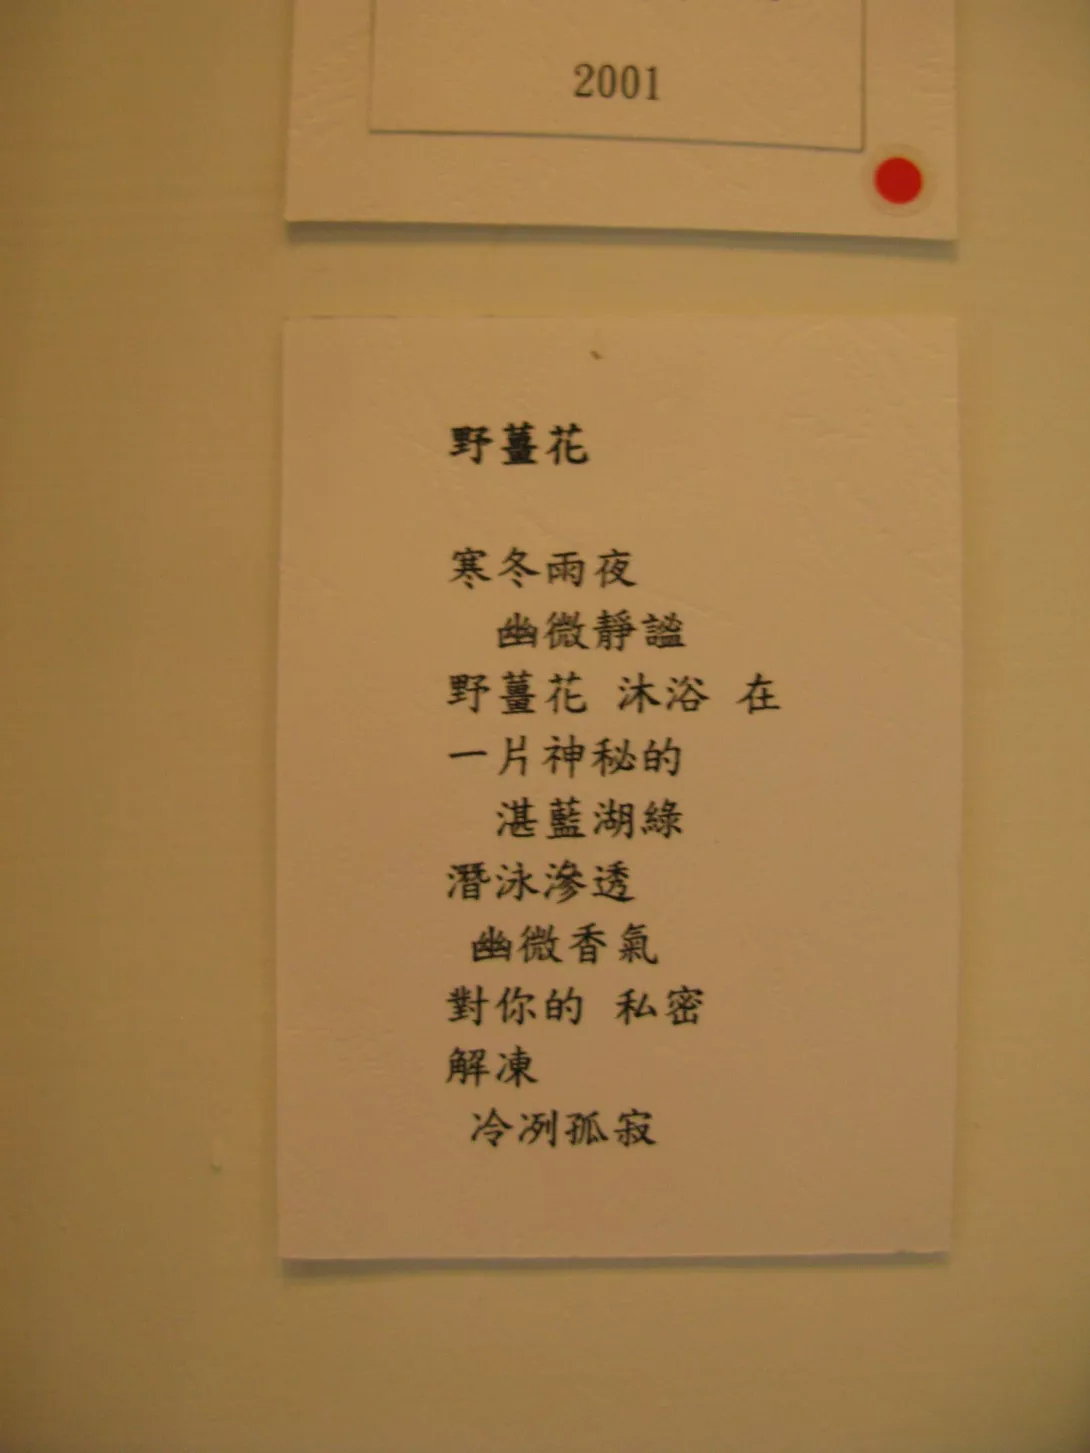 2001
野薑花
寒冬雨夜
幽微靜謐
野薑花 沐浴 在
一片神秘的
湛藍湖綠
潛泳滲透
幽微香氣
對你的 私密
解凍
冷冽孤寂